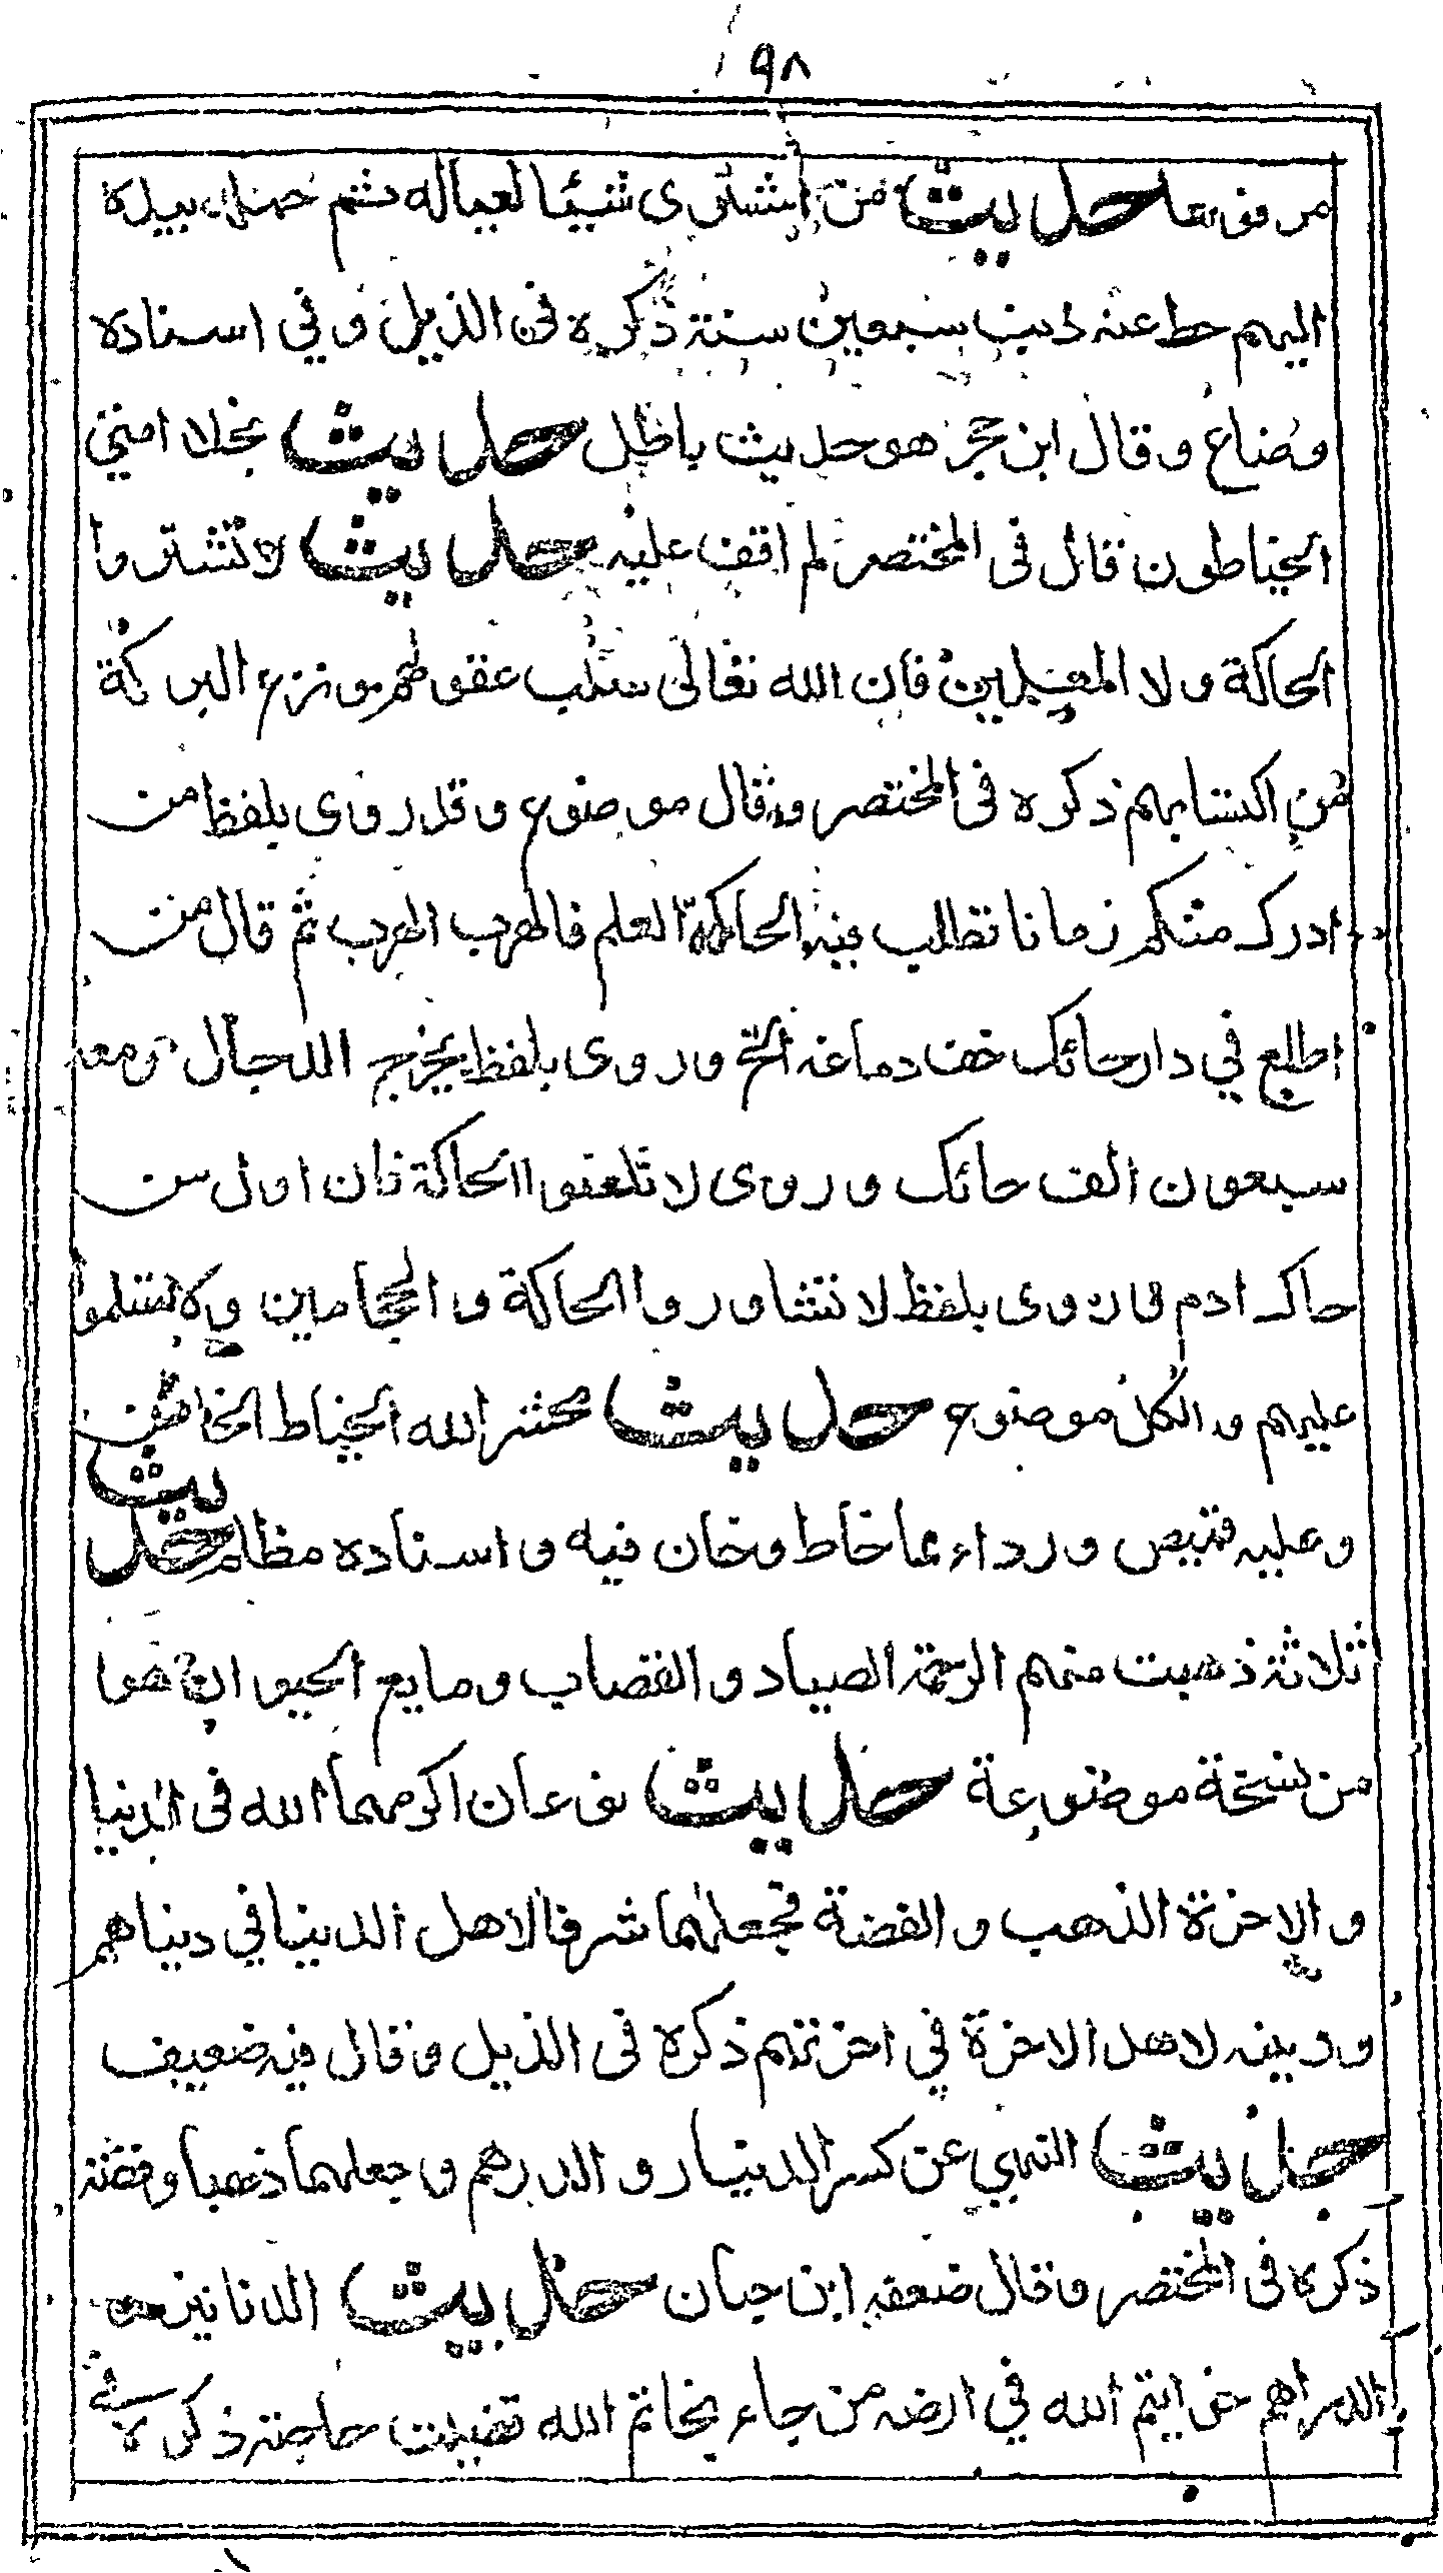 ٩٨
مرفوعا حديث من اشترى شيئا لعياله ثم حمله بيده
اليهم حط عنه ذنب سبعين سنة ذكره في الذيل وفي اسناده
وضاع وقال ابن حجر هو حديث باطل حديث بخلاء امتي
الخياطون قال في المختصر لم اقف عليه حديث لا تشتروا
الحاكة ولا المعلمين فان الله تعالى سلب عقولهم ونزع البركة
من اكسابهم ذكره في المختصر وقال موضوع وقد روى بلفظ من
ادرك منكم زمانا تطلب فيه الحاكة العلم فالهرب الهرب ثم قال من
اطلع في دار حائك خف دماغه الخ وروى بلفظ يخرج الدجال ومعه
سبعون الف حائك وروى لا تلعنوا الحاكة فان اول من
حاك ادم وروى بلفظ لا تشاوروا الحاكة والحجامين ولا تسلموا
عليهم والكل موضوع حديث يحشر الله الخياط الخائن
وعليه قميص ورداء مما خاط وخان فيه واسناده مظلم حديث
ثلاثة ذهبت منهم الرحمة الصياد والقصاب وبايع الحيوان هو
من نسخة موضوعة حديث نوعان اكرمهما الله في الدنيا
والاخرة الذهب والفضة فجعلهما شرفا لاهل الدنيا في دنياهم
وزينة لاهل الاخرة في اخرتهم ذكره في الذيل وقال فيه ضعيف
حديث النهي عن كسر الدينار والدرهم وجعلهما ذهبا وفضة
ذكره في المختصر وقال ضعفه ابن حبان حديث الدنانير و
الدراهم خواتيم الله في ارضه من جاء بخاتم الله قضيت حاجته ذكره في